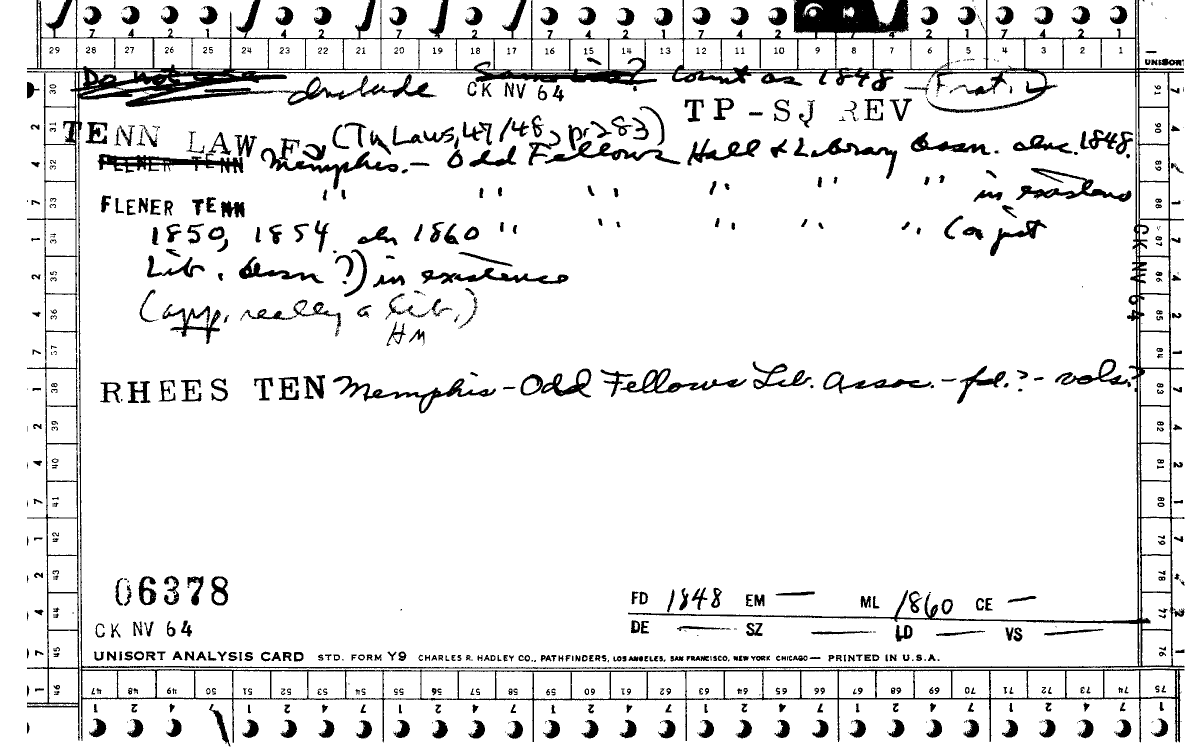 7 4 2 1 7 4 2 1 7 4 2 1 7 4 2 1 7 4 2 1 7 4 2 1
29 28 27 26 25 24 23 22 21 20 19 18 17 16 15 14 13 12 11 10 9 8 7 6 5 4 3 2 1
UNISORT
Do not use Include Same as? Count as 1848 - Frat. L
CK NV 64
TP-SJ REV
TENN LAW F, (Tn Laws, 47/48, p. 283)
FLENER TENN Memphis. - Odd Fellows Hall & Library Assn. inc. 1848.
FLENER TENN " " " " " " in existence
1850, 1854 1860 " " " " " (or just
Lib. Assn?) in existence
(app. really a Lib.)
HM
CK NV 64
RHEES TEN Memphis - Odd Fellows Lib. Assoc. - fd.? - vols.?
06378
CK NV 64
FD 1848 EM — ML 1860 CE —
DE — SZ — LD — VS —
UNISORT ANALYSIS CARD STD. FORM Y9 CHARLES R. HADLEY CO., PATHFINDERS, LOS ANGELES, SAN FRANCISCO, NEW YORK CHICAGO — PRINTED IN U.S.A.
46 47 48 49 50 51 52 53 54 55 56 57 58 59 60 61 62 63 64 65 66 67 68 69 70 71 72 73 74 75